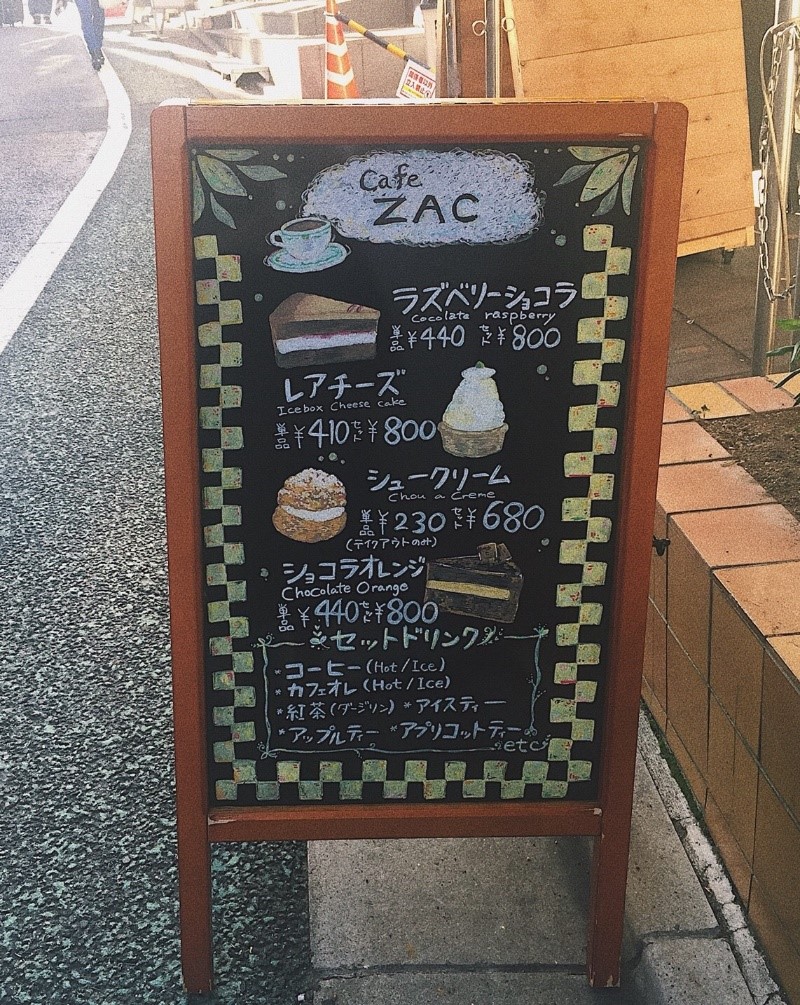 Cafe
ZAC
ラズベリーショコラ
Cocolate raspberry
単品 ¥440 セット ¥800
レアチーズ
Icebox Cheese cake
単品 ¥410 セット ¥800
シュークリーム
Chou a Creme
単品 ¥230 セット ¥680
(テイクアウトのみ)
ショコラオレンジ
Chocolate Orange
単品 ¥440 セット ¥800
セットドリンク
*コーヒー(Hot/Ice)
*カフェオレ(Hot/Ice)
*紅茶(ダージリン) *アイスティー
*アップルティー *アプリコットティー
etc